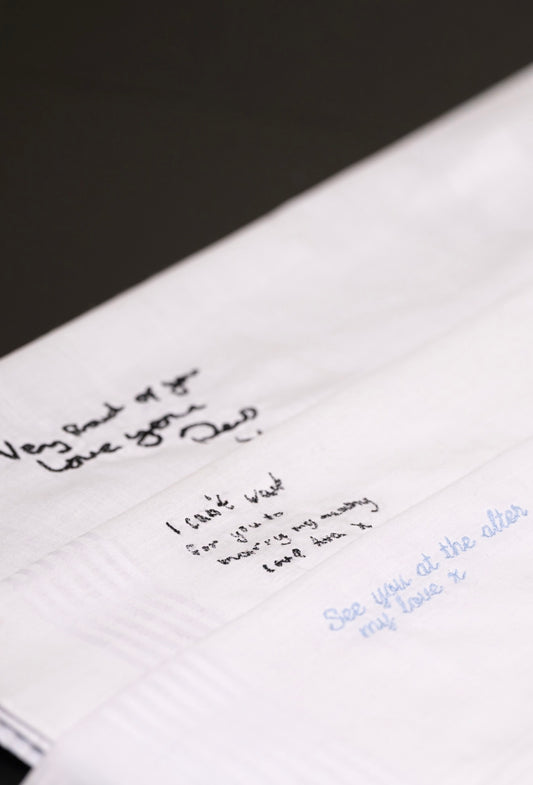 Very Proud of you
Love you
Dad
I can't wait
for you to
marry my mummy
Love x
See you at the alter
my love x